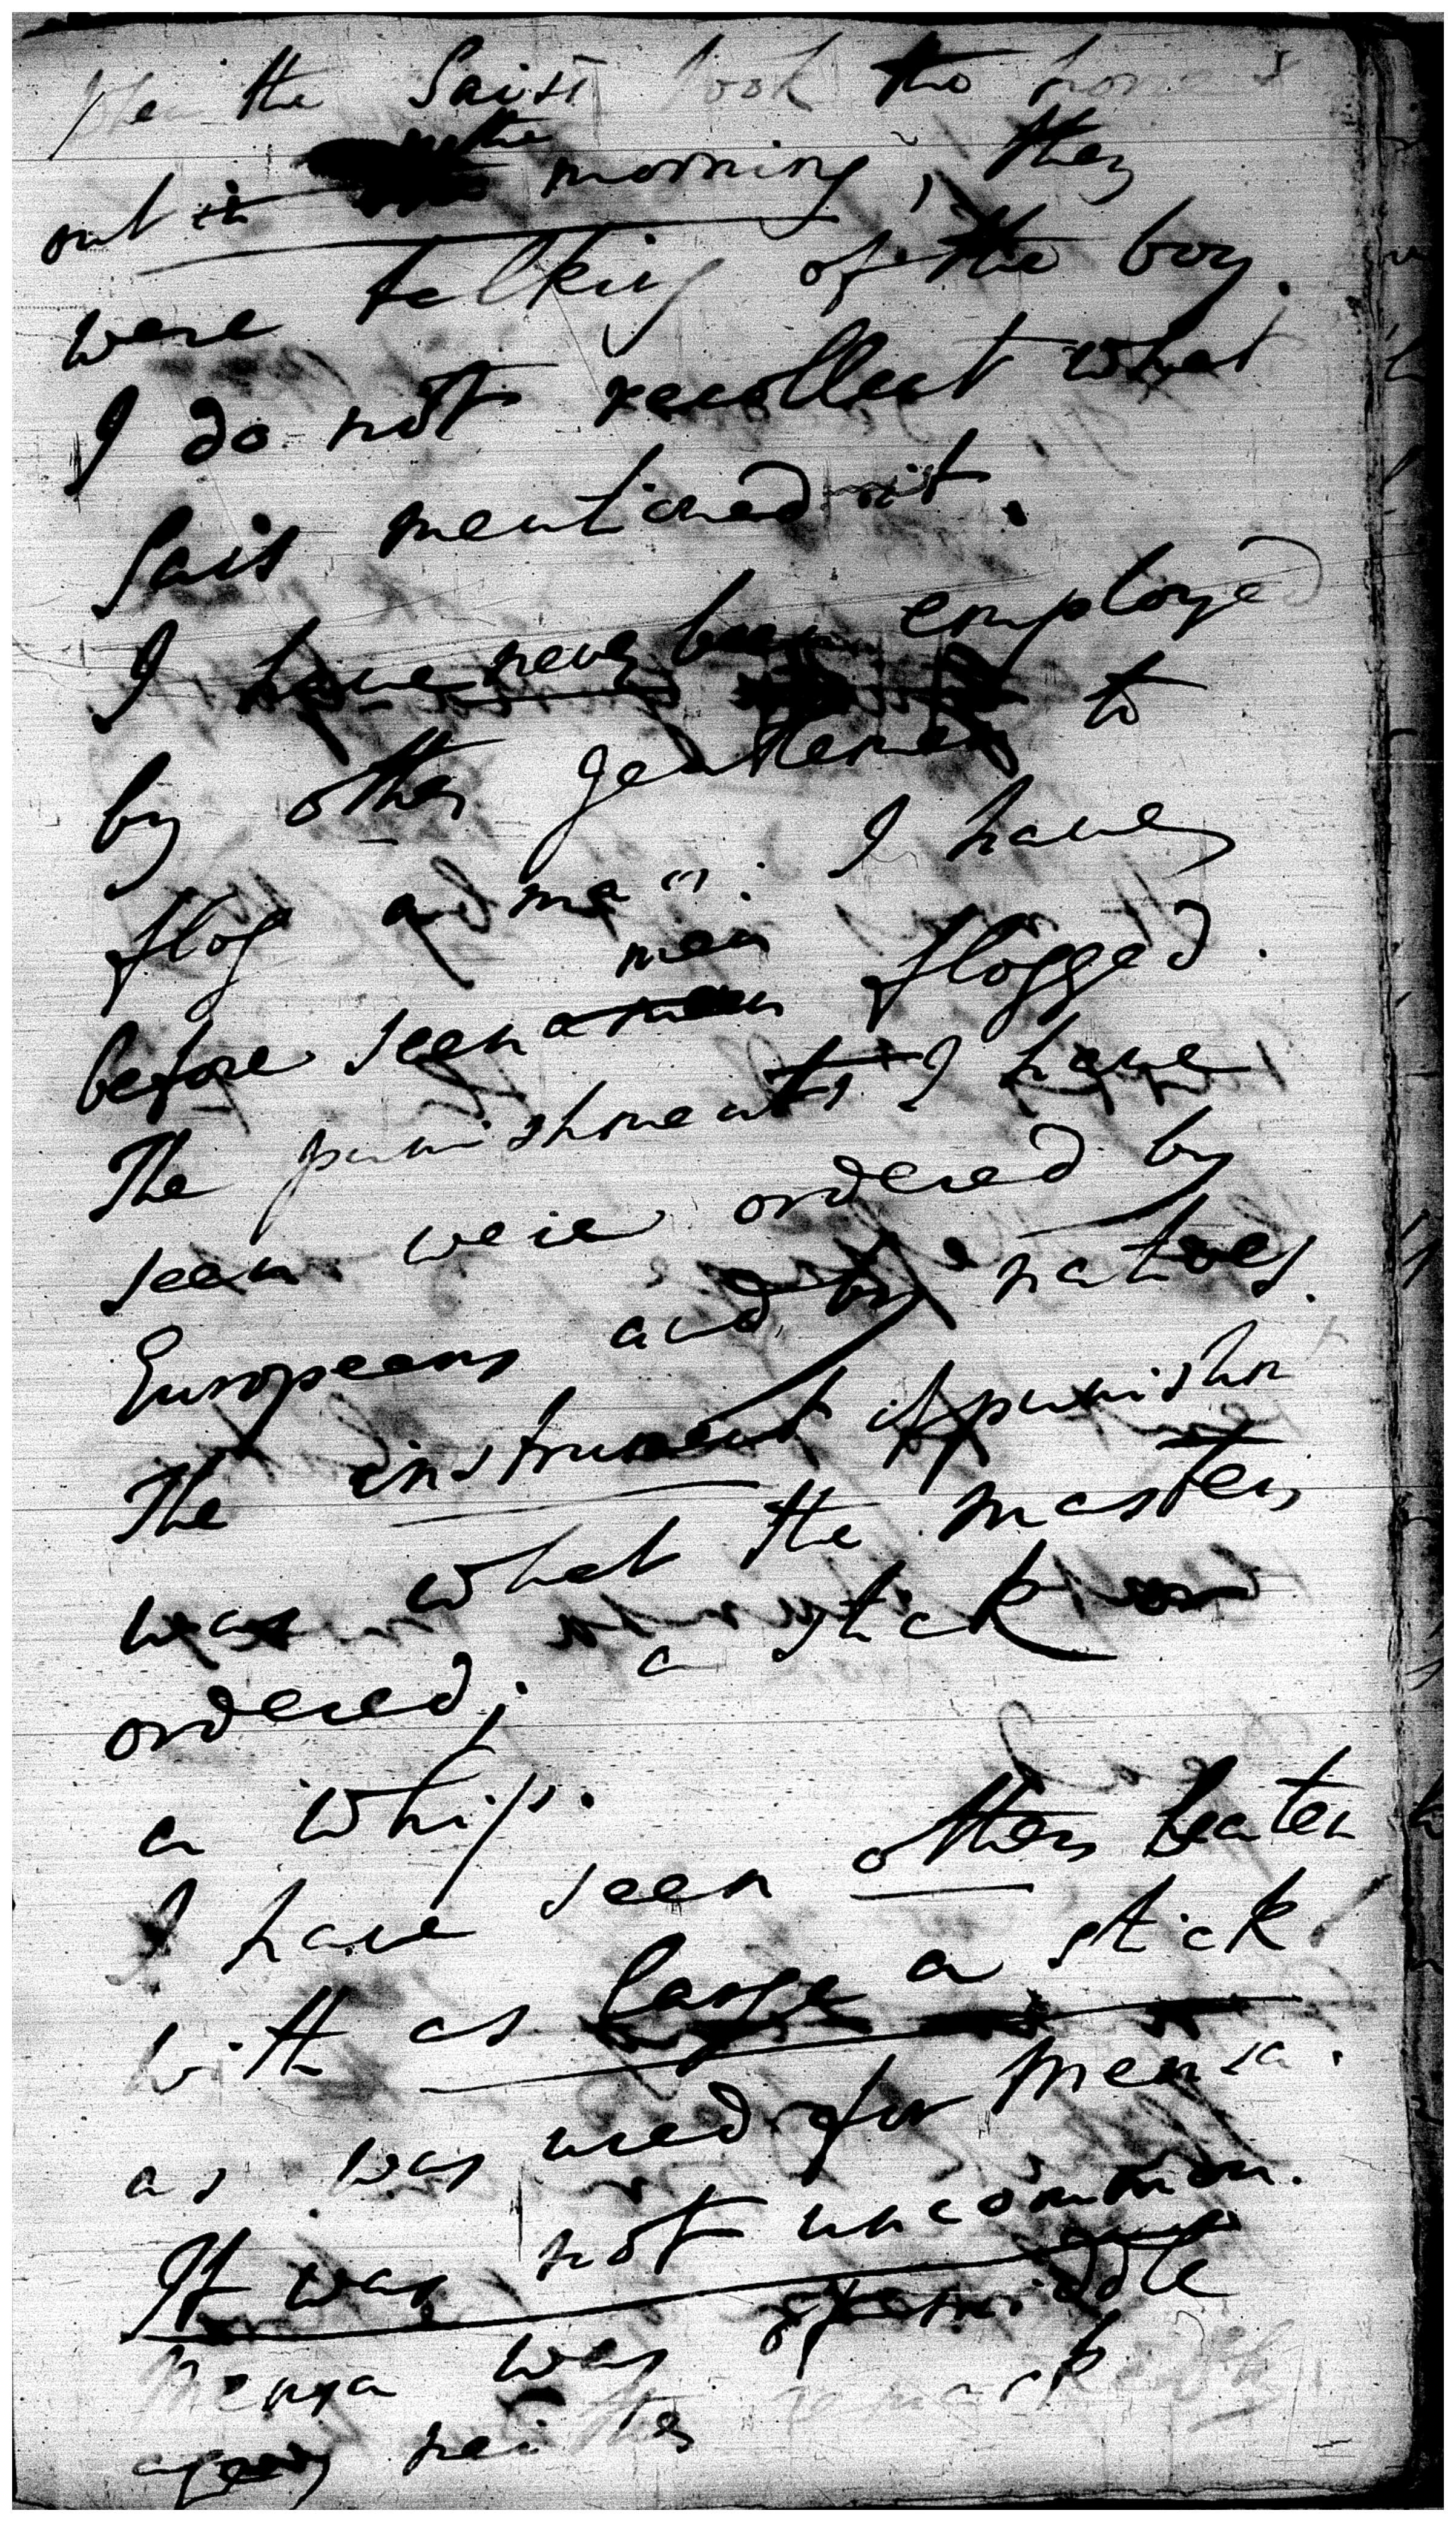 When the Saist took the horses
out in the morning, they
were talking of the boy.
I do not recollect what
Sais mentioned it.
I have never been employed
by other gentlemen to
flog a man. I have
before seen men flogged.
The punishments I have
seen were ordered by
Europeans and by natives.
The instrument of punishm
was what the masters
ordered; a stick or
a whip.
I have seen others beaten
with as large a stick
as was used for Mensa.
It was not uncommon.
Mensa was of middle
age, neither remarkably